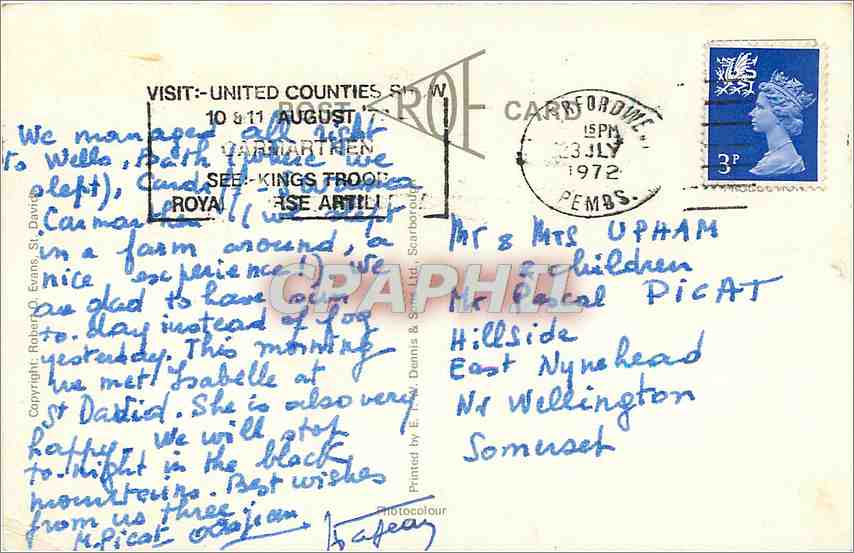 VISIT:-UNITED COUNTIES SHOW
10 & 11 AUGUST
CARMARTHEN
SEE:-KINGS TROOP
ROYA RSE ARTILL
POST CARD
RFORDWE
15PM
23JLY
1972
PEMBS.
3P
We managed all right
to Wells, Bath (where we
slept), Cardiff - Swansea
Carmarthen (we slept
in a farm around, a
nice experience!) We
are glad to have sun
to-day instead of fog
yesterday. This morning
we met Isabelle at
St David. She is also very
happy. We will stop
to-night in the black
mountains. Best wishes
from us three.
M. Picat
Mr & Mrs UPHAM
& children
Mr Pascal PICAT
Hillside
East Nynehead
Nr Wellington
Somerset
Copyright: Robert O. Evans, St. Davids
Printed by E. T. W. Dennis & Sons Ltd., Scarborough
Photocolour
CRAPHIL